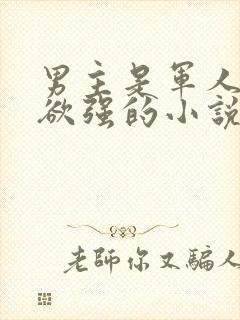 男主是軍人
欲強的小說
老師你又騙人